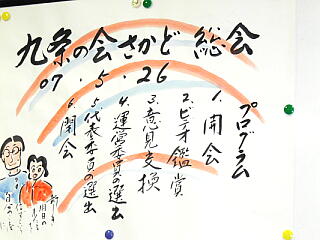 九条の会さかど 総会
07.5.26
プログラム
1.開会
2.ビデオ鑑賞
3.意見交換
4.運営委員の選出
5.代表委員の選出
6.閉会